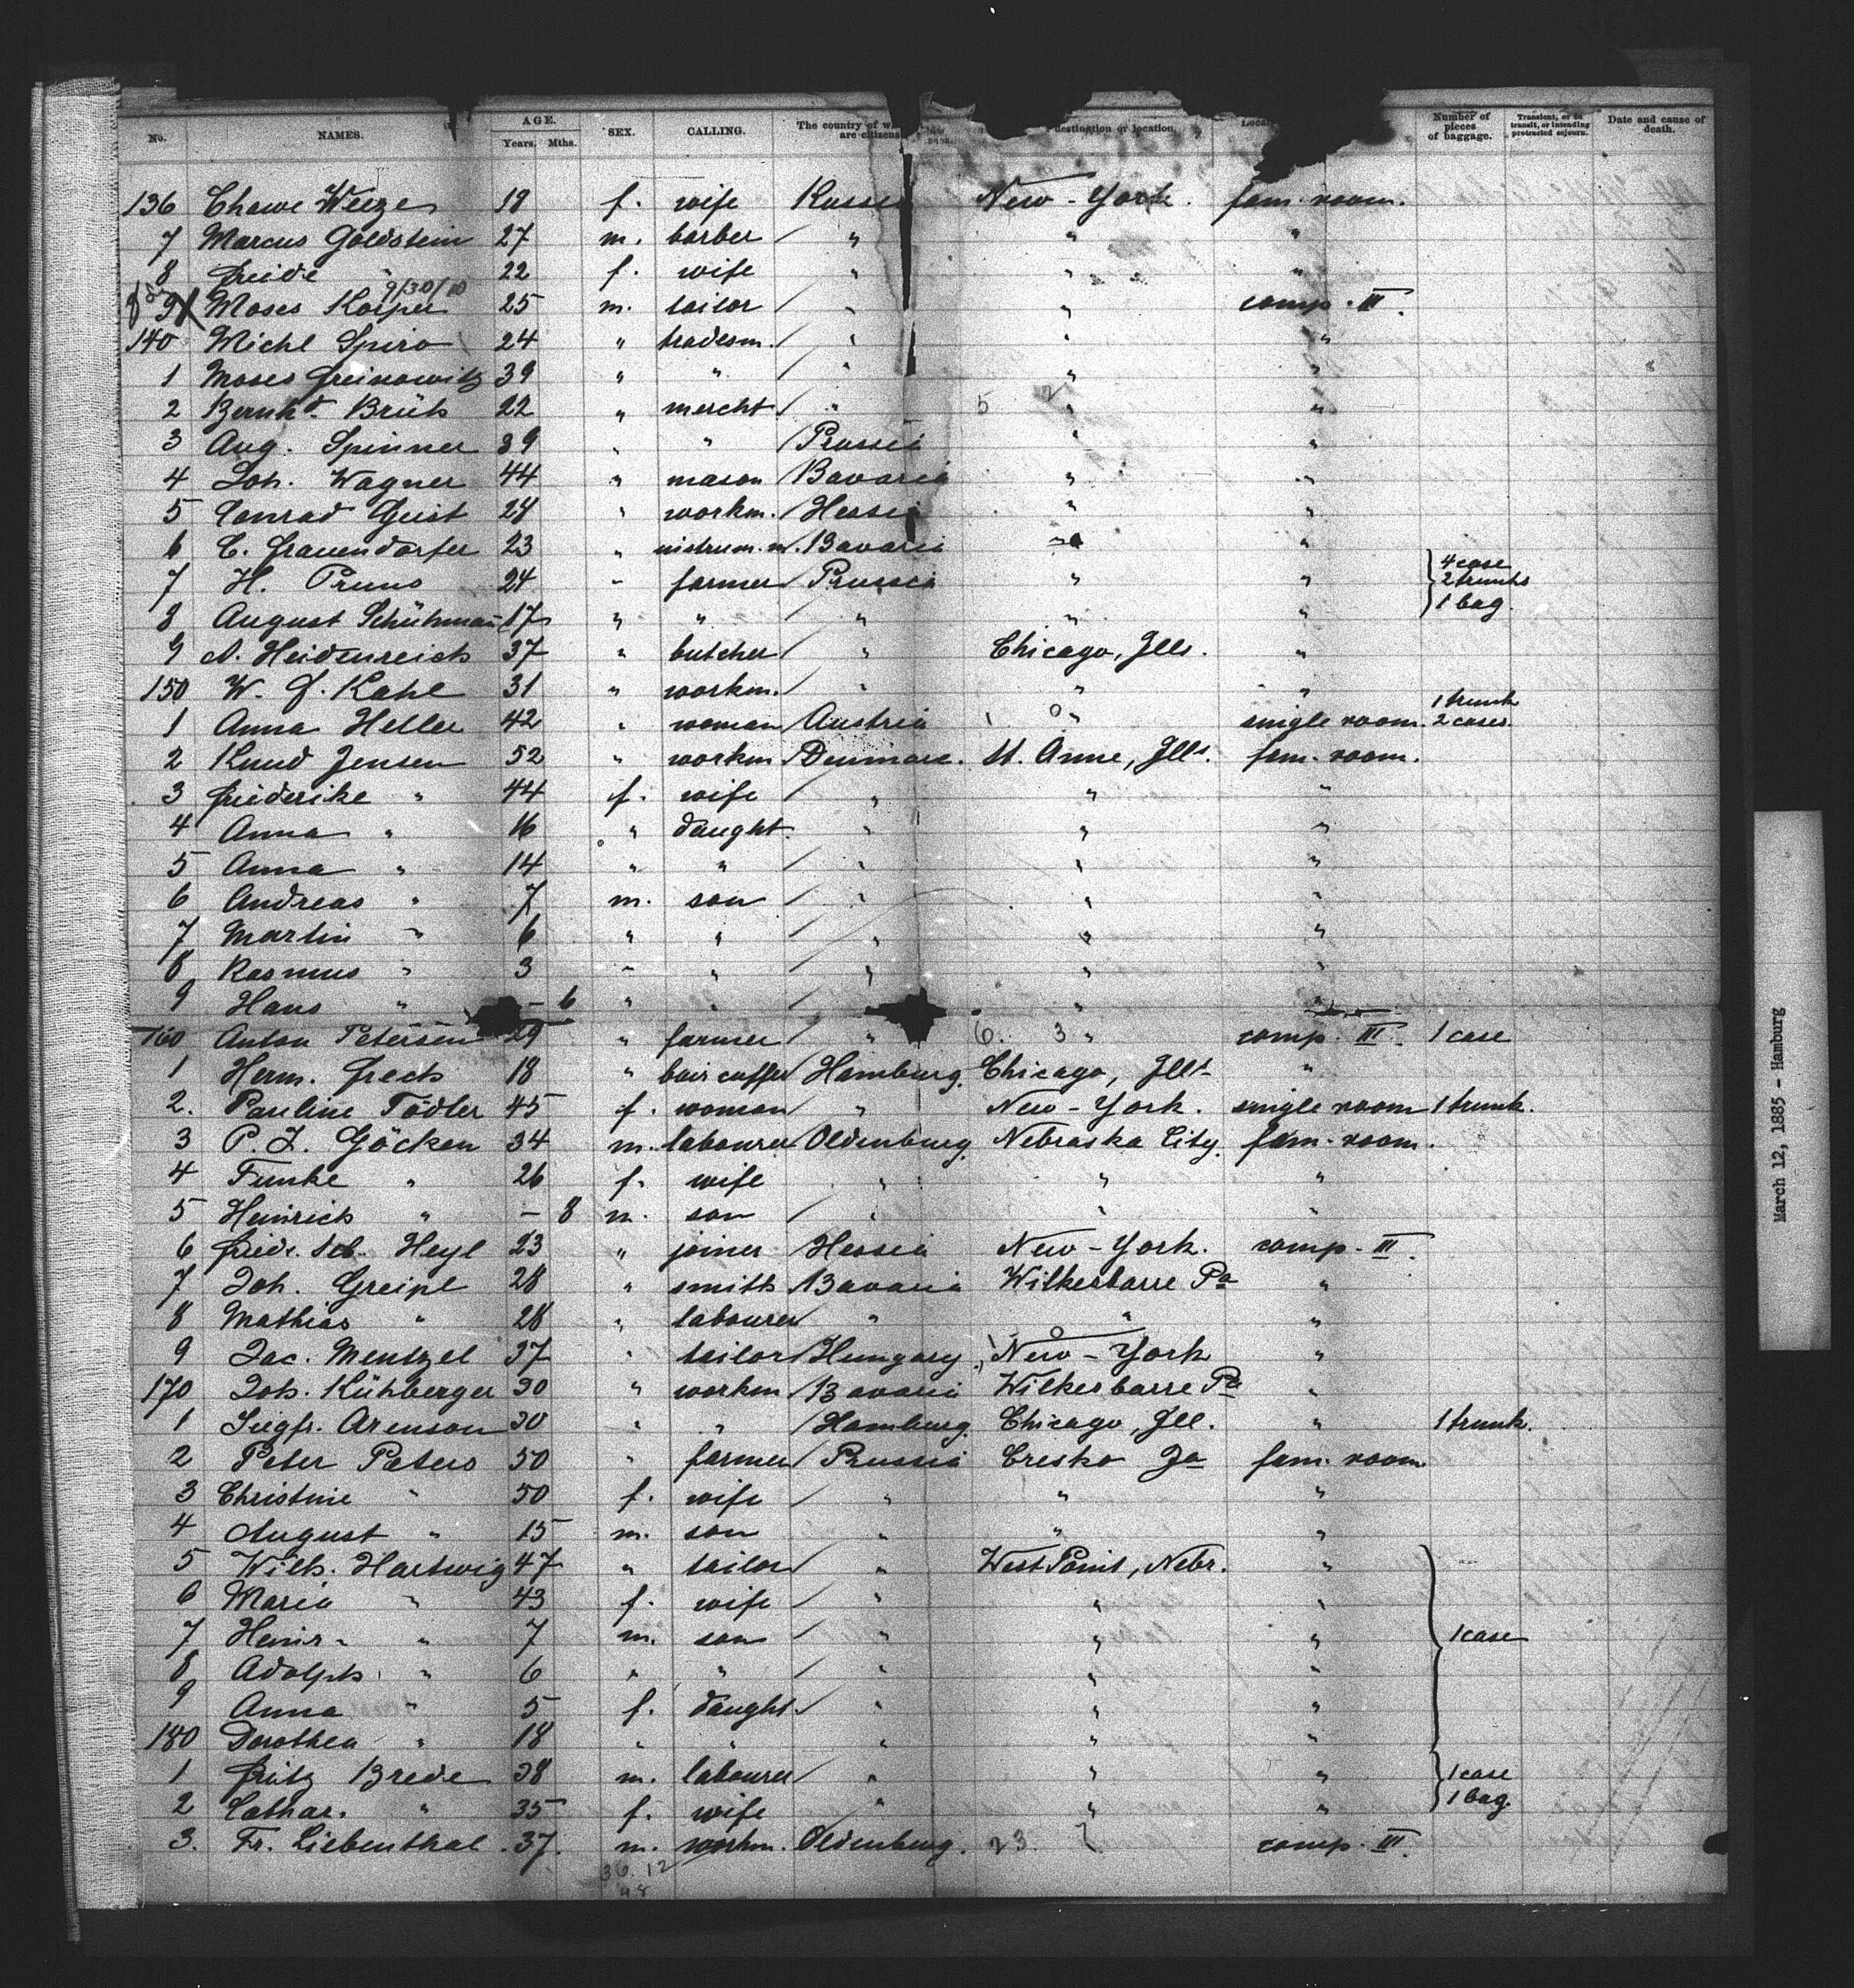 No. NAMES. AGE. Years. Mths. SEX. CALLING. The country of w are citizens destination or location. Number of pieces of baggage. Transient, or in transit, or intending protracted sojourn. Date and cause of death.
136 Chawe 19 f. wife New-York. fam. room.
7 Marcus Goldstein 27 m. barber / " " "
8 " 22 f. wife " " "
9/30/10
9 X Moses 25 m. tailor " " comp. III.
140 Michl Spiro 24 " tradesm. / " " "
1 Moses 39 " " / " " "
2 22 " mercht. / " 5 2 " "
3 Aug. Spinner 39 " " / Prussia " "
4 Joh. Wagner 44 " mason / Bavaria " "
5 Conrad Geist 24 " workm. / Hessia " "
6 C. Frauendorfer 23 " Bavaria " "
7 H. 24 " farmer / Prussia " " 4 case 2 trunks 1 bag.
8 August 17 " " / " " "
9 A. Heidenreich 37 " butcher / " Chicago, Ills. "
150 W. F. Kahl 31 " workm. / " " "
1 Anna Heller 42 " woman / Austria " single room. 1 trunk 2 cases.
2 Knud Jensen 52 " workm / Denmark. St. Anne, Ills. fam. room.
3 Friederike " 44 f. wife / " " "
4 Anna " 16 " daught. / " " "
5 Anna " 14 " " / " " "
6 Andreas " 7 m. son / " " "
7 Martin " 6 " " / " " "
8 Rasmus " 3 " " / " " "
9 Hans " - 6 " " / " " "
160 Anton Petersen 29 " farmer / " 6. 3 " comp. III. 1 case
1 Herm. 18 " Hamburg. Chicago, Ills. "
2. Pauline Tödler 45 f. woman / " New-York. single room 1 trunk.
3 P. J. Göcken 34 m. labourer / Oldenburg. Nebraska City. fam. room.
4 " 26 f. wife " " "
5 Heinrich " - 8 m. son / " " "
6 Heyl 23 " joiner / Hessia New-York. comp. III.
7 Joh. Greipl 28 " smith / Bavaria Wilkesbarre Pa "
8 Mathias " 28 " labourer / " " "
9 Jac. Mentzel 37 " tailor / Hungary. New-York "
170 Joh. Kühberger 30 " workm / Bavaria Wilkesbarre Pa "
1 Siegfr. Arenson 30 " " / Hamburg. Chicago, Ill. " 1 trunk.
2 Peter Peters 50 " farmer / Prussia Cresko Ja fam. room
3 Christine " 50 f. wife / " " "
4 August " 15 m. son " " "
5 Wilh. Hartwig 47 " tailor / " West Point, Nebr. "
6 Maria " 43 f. wife / " " "
7 Heinr. " 7 m. son / " " " 1 case
8 Adolph " 6 " " / " " "
9 Anna " 5 f. daught. / " " "
180 Dorothea " 18 " " " " "
1 Fritz Brede 38 m. labourer / " " " 1 case
2 Cathar. " 35 f. wife " " " 1 bag.
3. Fr. Liebenthal 37. m. workm. Oldenburg. 23. comp. III.
36. 12
48
March 12, 1885 - Hamburg